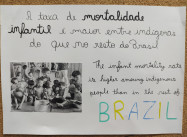 A taxa de mortalidade
infantil é maior entre indígenas
do que no resto do Brasil
The infant mortality rate
is higher among indigenous
people than in the rest of
BRAZIL